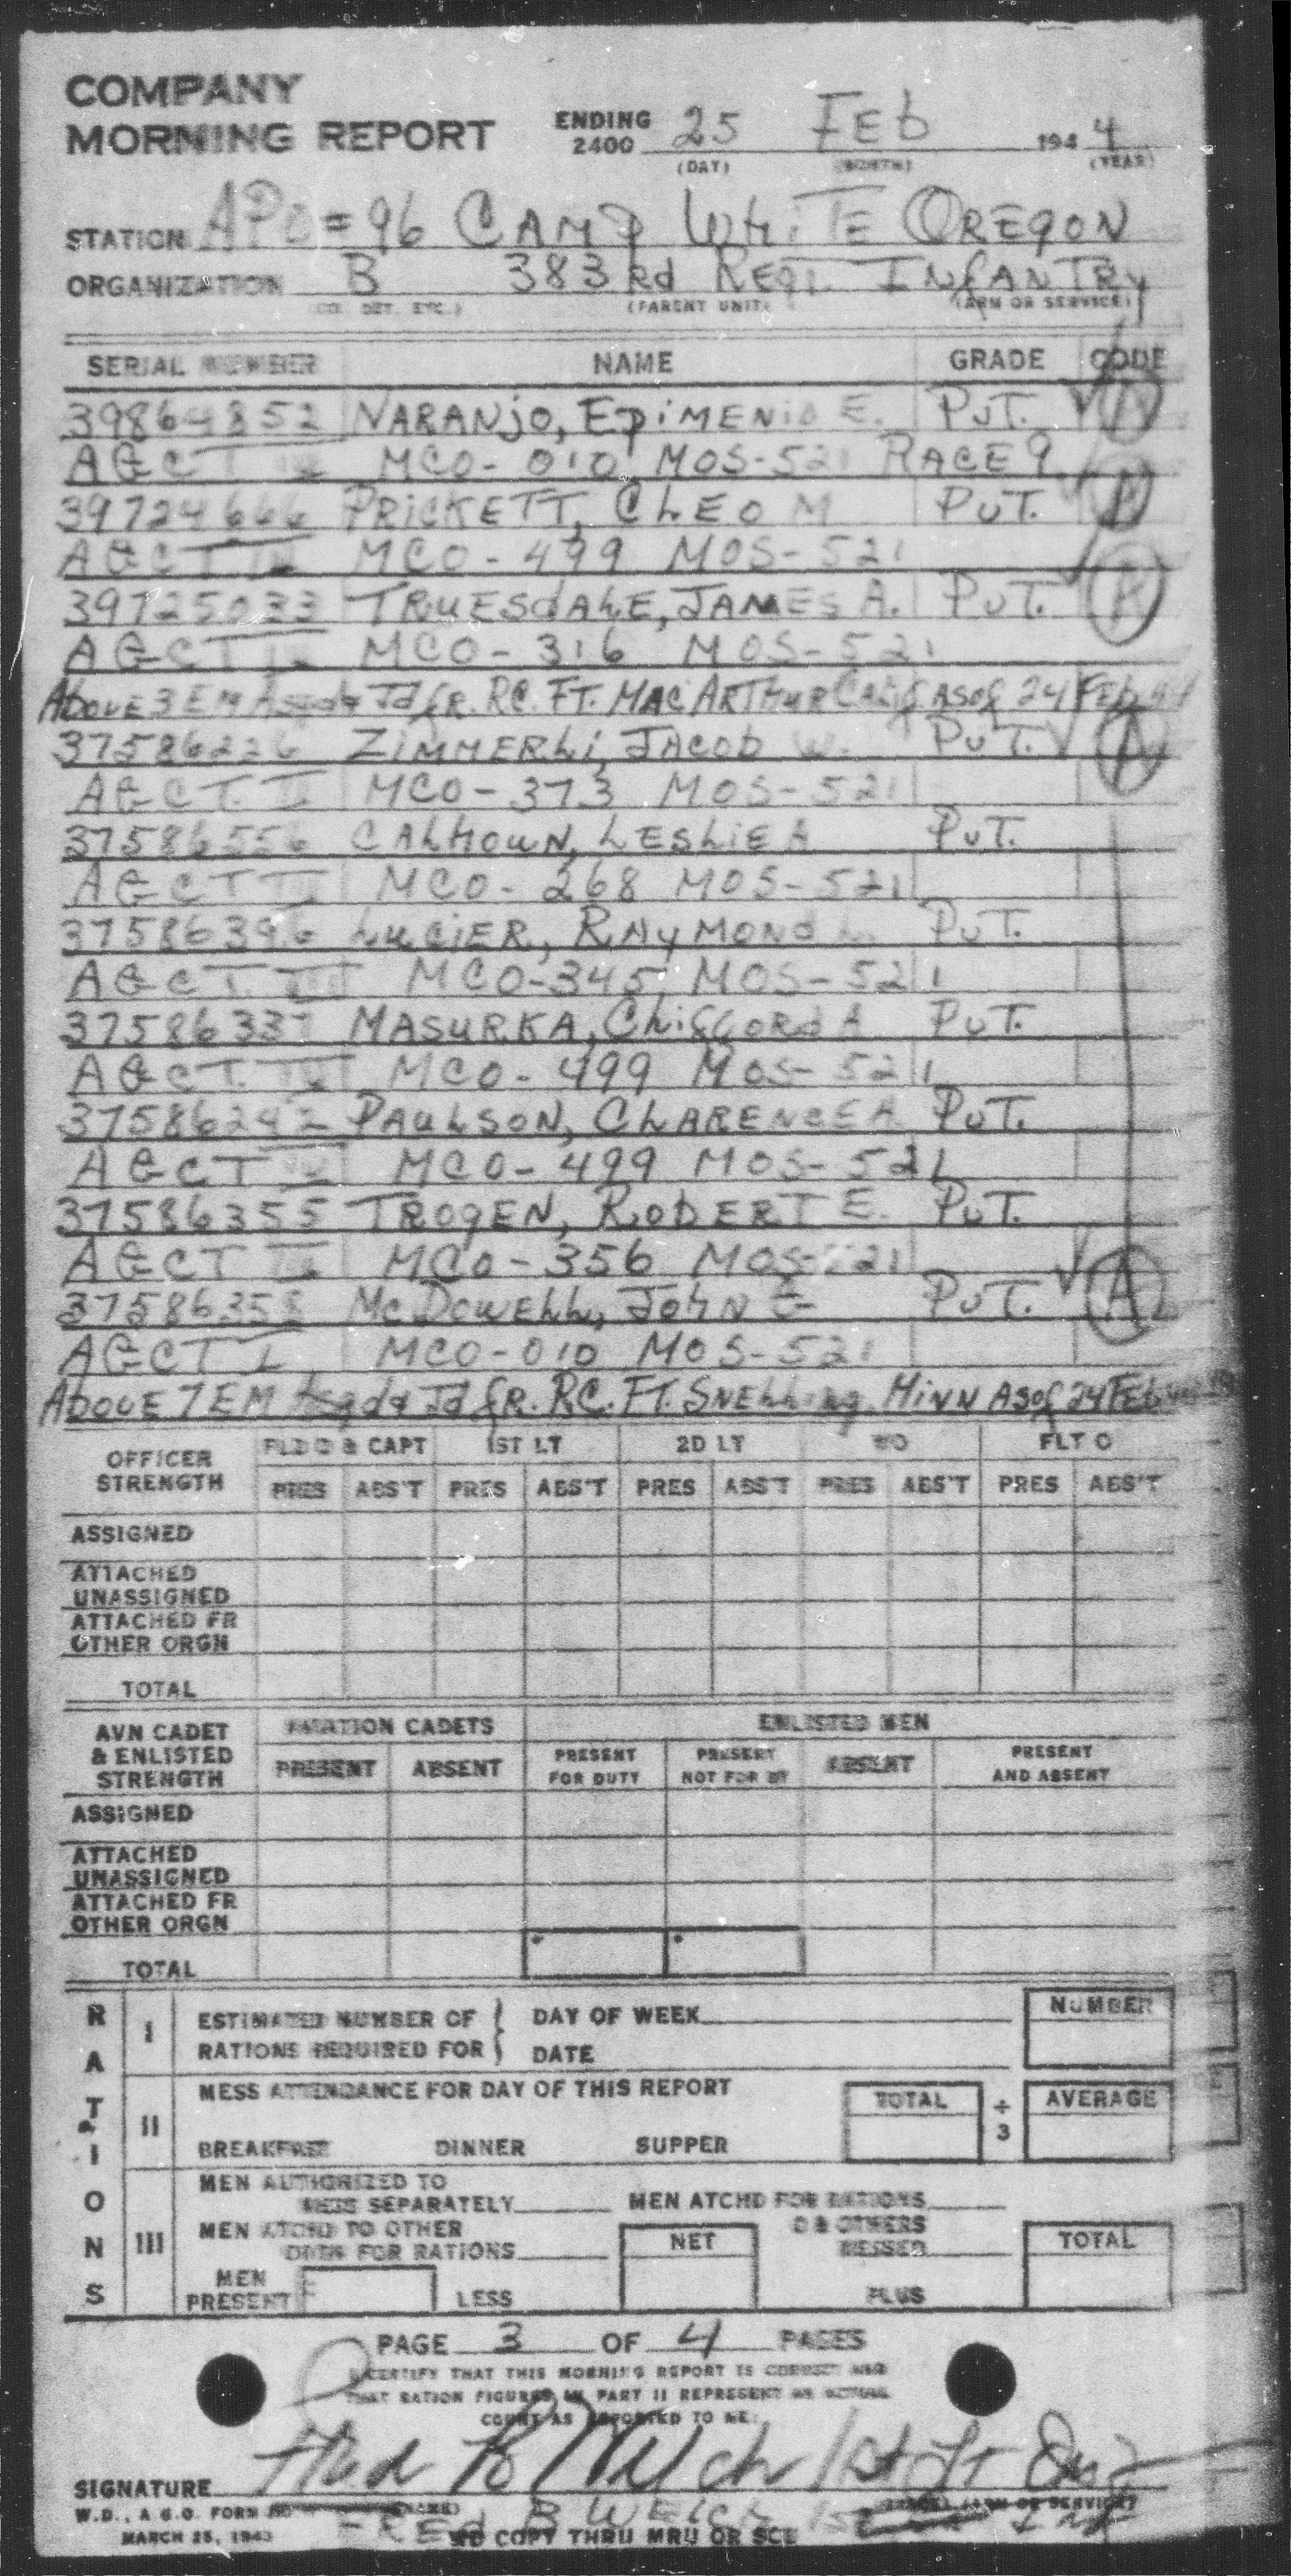 COMPANY
MORNING REPORT ENDING 2400 25 FEb 1944
(DAY) (MONTH) (YEAR)
STATION APO=96 CAMP WHiTE OREGON
ORGANIZATION B 383rd REGT. INfANTRy
(CO. DET. ETC.) (PARENT UNIT) (ARM OR SERVICE)
SERIAL NUMBER NAME GRADE CODE
39864852 NARANjO, EpiMENiO E. PvT. A
AGCT MCO-010 MOS-521 RACE 9
39724666 PRICKETT, CLEO M PvT. A
AGCT MCO-499 MOS-521
39725033 TRUESdALE, JAMES A. PvT. A
AGCT MCO-316 MOS-521
AbovE 3 EM Asgd & Jd fR. RC. FT. MAC ARTHUR CALif ASof 24 FEb 44
37586226 ZiMMERLi, JACOb W. PvT. A
AGCT. II MCO-373 MOS-521
37586556 CALHOUN, LESLIE A PvT.
AGCT III MCO-268 MOS-521
37586396 LUCiER, RAyMONd L. PvT.
AGCT. III MCO-345 MOS-521
37586337 MASURKA, CLiffORd A PvT.
AGCT. IV MCO-499 MOS-521
37586242 PAULSON, CLARENCE A PvT.
AGCT MCO-499 MOS-521
37586355 TROgEN, RObERT E. PvT.
AGCT MCO-356 MOS-521
37586358 McDOWELL, JOhN G PvT. A
AGCT I MCO-010 MOS-521
AbovE 7 EM Asgd & Jd fR. RC. FT. SNELLing MiNN ASof 24 FEb
OFFICER STRENGTH FLD O & CAPT 1ST LT 2D LT WO FLT O
PRES ABS'T PRES ABS'T PRES ABS'T PRES ABS'T PRES ABS'T
ASSIGNED
ATTACHED
UNASSIGNED
ATTACHED FR
OTHER ORGN
TOTAL
AVN CADET & ENLISTED STRENGTH AVIATION CADETS ENLISTED MEN
PRESENT ABSENT PRESENT FOR DUTY PRESENT NOT FOR DY ABSENT PRESENT AND ABSENT
ASSIGNED
ATTACHED
UNASSIGNED
ATTACHED FR
OTHER ORGN
TOTAL
RATIONS
I ESTIMATED NUMBER OF RATIONS REQUIRED FOR DAY OF WEEK NUMBER
DATE
II MESS ATTENDANCE FOR DAY OF THIS REPORT TOTAL ÷ 3 AVERAGE
BREAKFAST DINNER SUPPER
III MEN AUTHORIZED TO
MESS SEPARATELY MEN ATCHD FOR RATIONS
MEN ATCHD TO OTHER ORGN FOR RATIONS NET O & OTHERS MESSED TOTAL
MEN PRESENT LESS PLUS
PAGE 3 OF 4 PAGES
I CERTIFY THAT THIS MORNING REPORT IS CORRECT AND
THAT RATION FIGURES IN PART II REPRESENT AN ACTUAL
COUNT AS REPORTED TO ME:
SIGNATURE Fred B Welch 1st Lt Inf
W.D., A.G.O. FORM NO (NAME) (GRADE) (ARM OR SERVICE)
FREd B WELCh 1st Inf
MARCH 25, 1943 COPY THRU MRU OR SCL